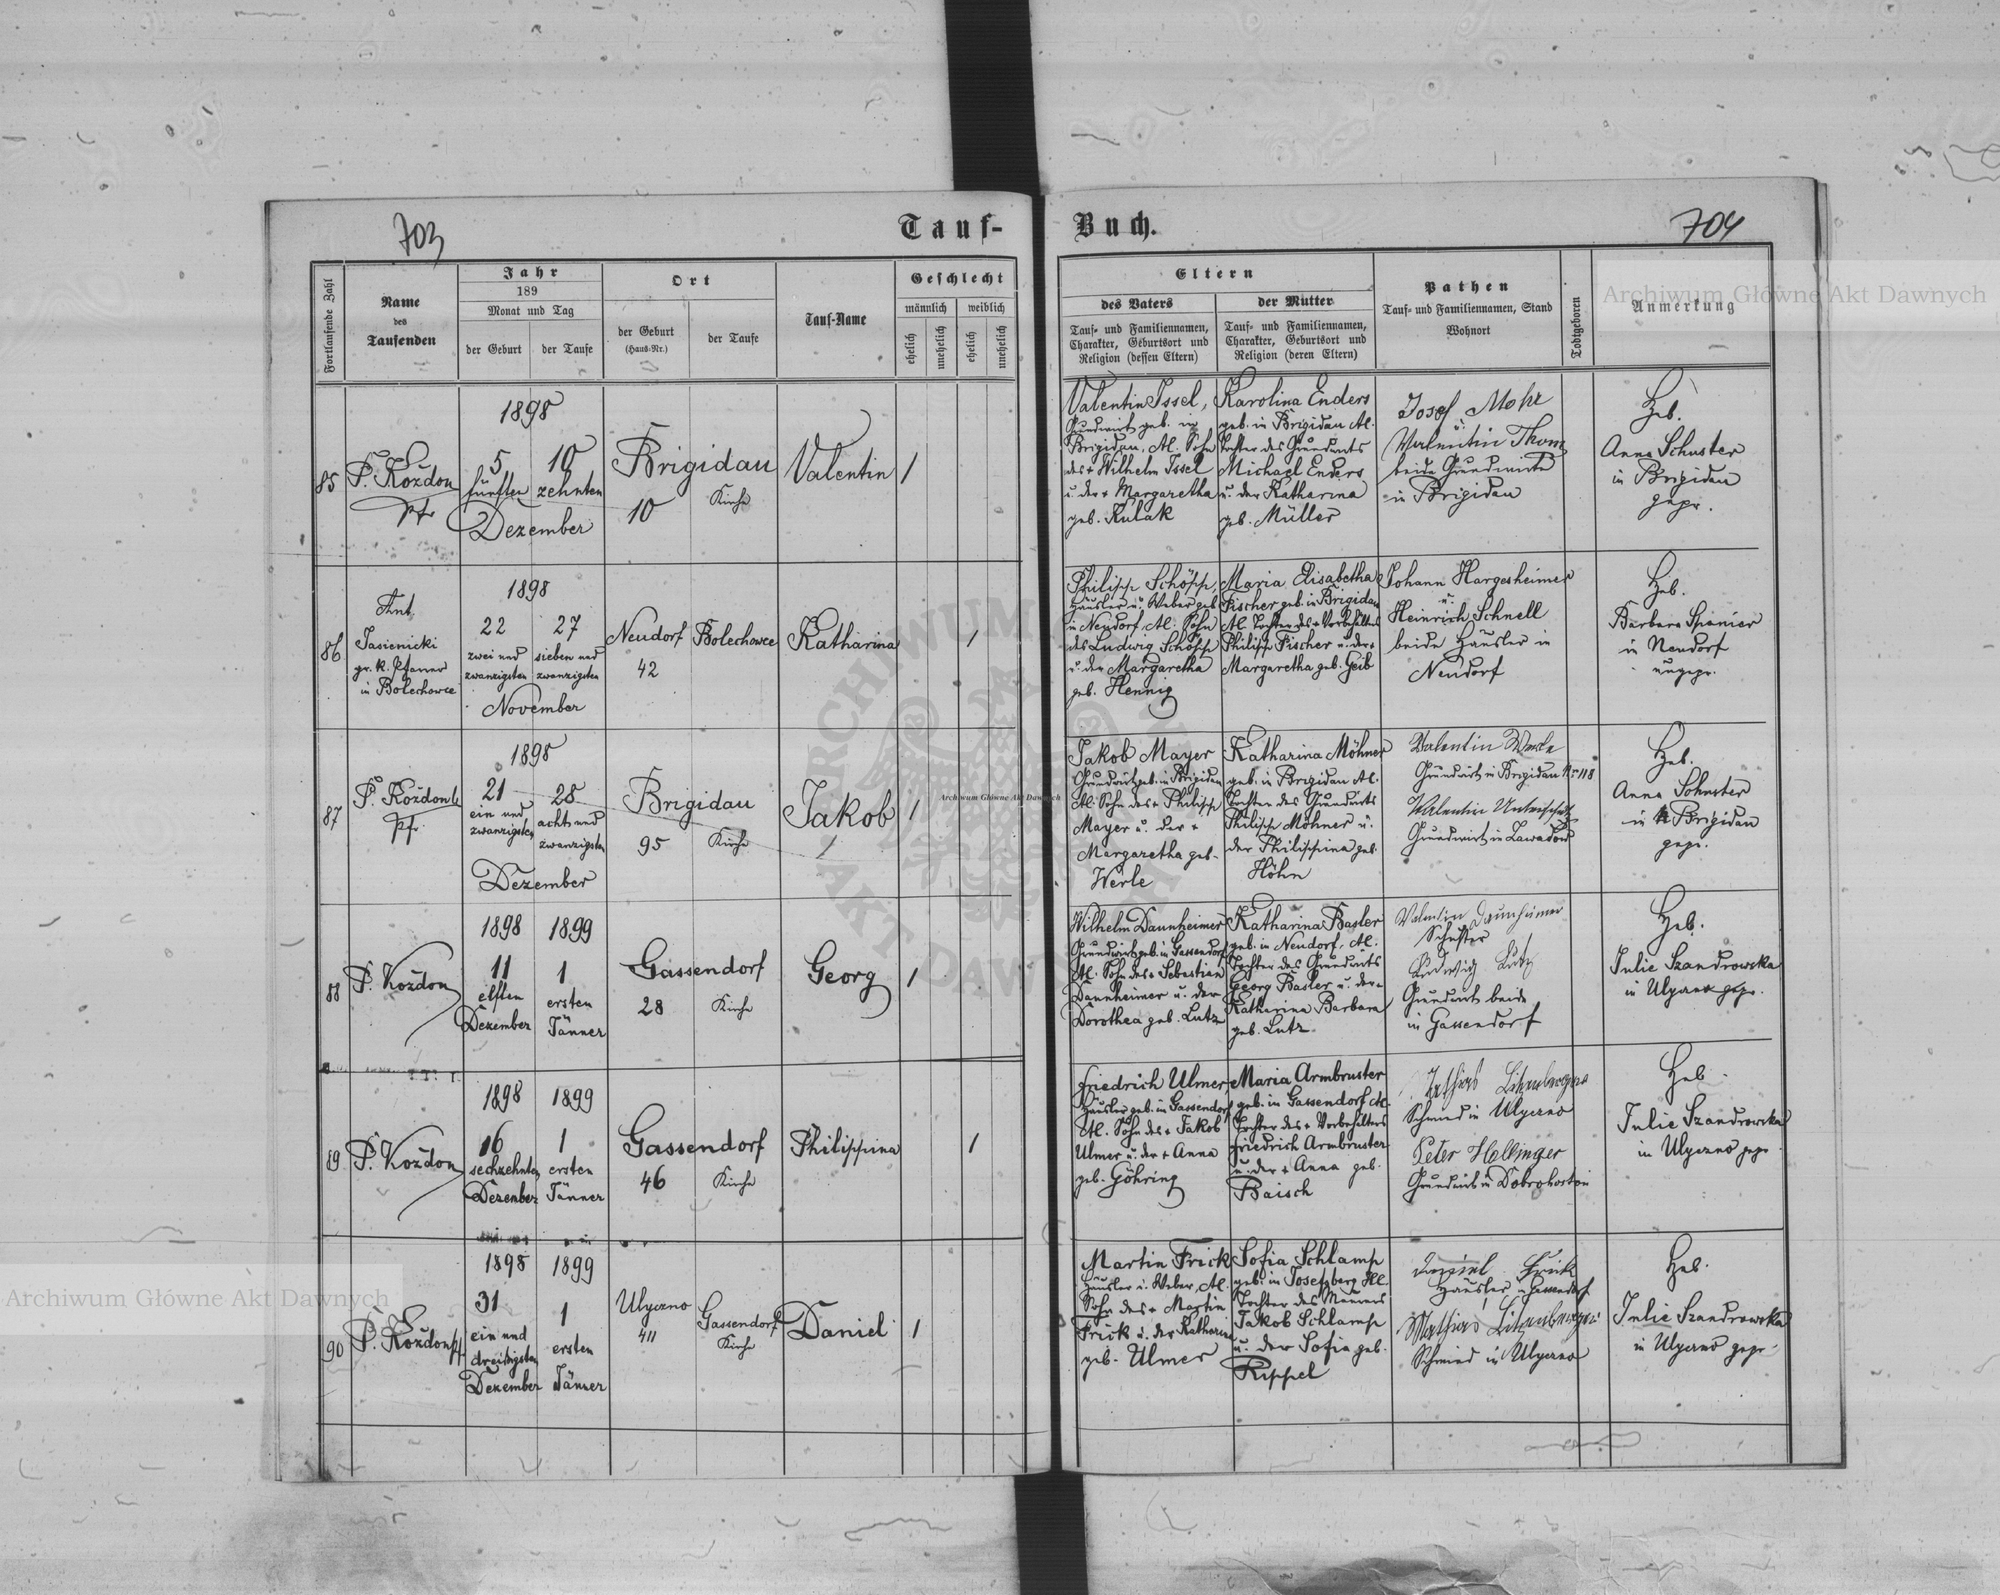 703
Tauf-
Buch.
704
Fortlaufende Zahl
Name
des
Taufenden
Jahr
189
Monat und Tag
der Geburt
der Taufe
Ort
der Geburt
(Haus-Nr.)
der Taufe
Tauf-Name
Geschlecht
männlich
weiblich
ehelich
unehelich
ehelich
unehelich
Eltern
des Vaters
Tauf- und Familiennamen,
Charakter, Geburtsort und
Religion (dessen Eltern)
der Mutter
Tauf- und Familiennamen,
Charakter, Geburtsort und
Religion (deren Eltern)
Pathen
Tauf- und Familiennamen, Stand
Wohnort
Todtgeboren
Anmerkung
85
P. Kozdon
Pfr
1898
5
fünften
10
zehnten
Dezember
Brigidau
10
Kirche
Valentin
1
Valentin Issel,
Grundwirt geb. in
Brigidau, Al. Sohn
des + Wilhelm Issel
u. der + Margaretha
geb. Kulak
Karolina Enders
geb. in Brigidau Al.
Tochter des Grundwirts
Michael Enders
u. der Katharina
geb. Müller
Josef Mohr
u.
Valentin Thom
beide Grundwirte
in Brigidau
Heb.
Anna Schuster
in Brigidau
gepr.
86
Ant.
Jasienicki
gr. k. Pfarrer
in Bolechowce
1898
22
zwei und
zwanzigsten
27
sieben und
zwanzigsten
November
Neudorf
42
Bolechowce
Katharina
1
Philipp Schöpp,
Häusler u. Weber geb
in Neudorf, Al. Sohn
des Ludwig Schöpp
u. der Margaretha
geb. Hennig
Maria Elisabetha
Fischer geb. in Brigidau
Al. Tochter des + Vorbehälters
Philipp Fischer u. der +
Margaretha geb. Geib
Johann Hargesheimer
u.
Heinrich Schnell
beide Häusler in
Neudorf
Heb.
Barbara Spanier
in Neudorf
ungepr.
87
P. Kozdon
Pfr.
1898
21
ein und
zwanzigsten
28
acht und
zwanzigsten
Dezember
Brigidau
95
Kirche
Jakob
1
Jakob Mayer
Grundwirt geb. in Brigidau
Al. Sohn des + Philipp
Mayer u. der +
Margaretha geb.
Werle
Katharina Möhner
geb. in Brigidau Al.
Tochter des Grundwirts
Philipp Möhner u.
der Philippina geb.
Höhn
Valentin Werle
Grundwirt in Brigidau Nr 118
Valentin Unterschütz
Grundwirt in
Heb.
Anna Schuster
in Brigidau
gepr.
88
P. Kozdon
1898
1899
11
elften
Dezember
1
ersten
Jänner
Gassendorf
28
Kirche
Georg
1
Wilhelm Dannheimer
Grundwirt geb. in Gassendorf
Al. Sohn des + Sebastian
Dannheimer u. der
Dorothea geb. Lutz
Katharina Basler
geb. in Neudorf, Al.
Tochter des Grundwirts
Georg Basler u. der +
Katharina Barbara
geb. Lutz
Valentin Daunheimer
Schuster
Ludwig Lutz
Grundwirt beide
in Gassendorf
Heb.
Julie Szandrowska
in Ulyczno gepr.
89
P. Kozdon
1898
1899
16
sechzehnten
Dezember
1
ersten
Jänner
Gassendorf
46
Kirche
Philippina
1
Friedrich Ulmer,
Häusler geb. in Gassendorf
Al. Sohn des + Jakob
Ulmer u. der + Anna
geb. Göhring
Maria Armbruster
geb. in Gassendorf Al.
Tochter des + Vorbehälters
Friedrich Armbruster
u. der + Anna geb.
Baisch
Mathias Litzenberger
Schmied in Ulyczno
Peter Hellinger
Grundwirt in Dobrohostow
Heb.
Julie Szandrowska
in Ulyczno gepr
90
P. Kozdon Pf
1898
1899
31
ein und
dreißigsten
Dezember
1
ersten
Jänner
Ulyczno
411
Gassendorf
Kirche
Daniel
1
Martin Frick
Häusler u. Weber, Al.
Sohn des + Martin
Frick u. der Katharina
geb. Ulmer
Sofia Schlamp
geb. in Josefsberg Al.
Tochter des Maurers
Jakob Schlamp
u. der Sofia geb.
Rippel
Daniel Frick
Häusler in Gassendorf
Mathias Litzenberger
Schmied in Ulyczno
Heb.
Julie Szandrowska
in Ulyczno gepr.
Archiwum Główne Akt Dawnych
Archiwum Główne Akt Dawnych
Archiwum Główne Akt Dawnych
ARCHIWUM
AKT DAWNYCH